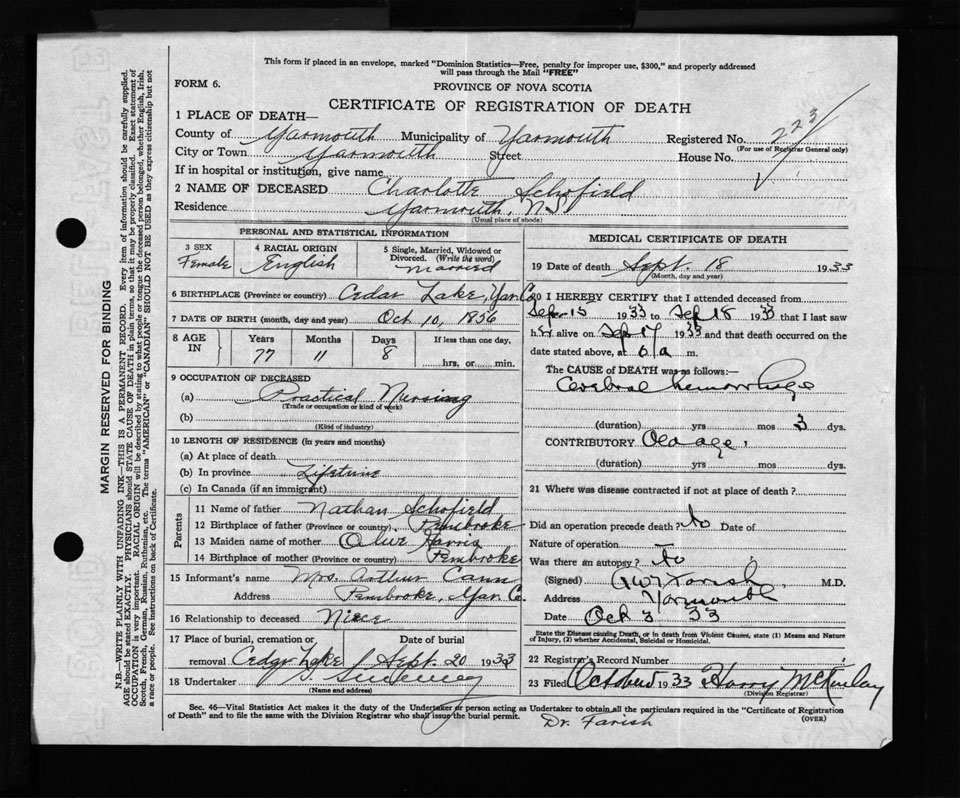 This form if placed in an envelope, marked "Dominion Statistics—Free, penalty for improper use, $300," and properly addressed
will pass through the Mail "FREE"
FORM 6.
PROVINCE OF NOVA SCOTIA
CERTIFICATE OF REGISTRATION OF DEATH
1 PLACE OF DEATH—
County of Yarmouth Municipality of Yarmouth Registered No. 223
(For use of Registrar General only)
City or Town Yarmouth Street House No.
If in hospital or institution, give name
2 NAME OF DECEASED Charlotte Schofield
Residence Yarmouth, N.S.
(Usual place of abode)
PERSONAL AND STATISTICAL INFORMATION
3 SEX 4 RACIAL ORIGIN 5 Single, Married, Widowed or
Divorced. (Write the word)
Female English married
6 BIRTHPLACE (Province or country) Cedar Lake, Yar. Co.
7 DATE OF BIRTH (month, day and year) Oct 10, 1856
8 AGE IN Years Months Days If less than one day,
77 11 8 hrs, or min.
9 OCCUPATION OF DECEASED
(a) Practical Nursing
(Trade or occupation or kind of work)
(b)
(Kind of industry)
10 LENGTH OF RESIDENCE (in years and months)
(a) At place of death
(b) In province Lifetime
(c) In Canada (if an immigrant)
Parents
11 Name of father Nathan Schofield
12 Birthplace of father (Province or country) Pembroke
13 Maiden name of mother Olive Harris
14 Birthplace of mother (Province or country) Pembroke
15 Informant's name Mrs. Arthur Cann
Address Pembroke, Yar. Co.
16 Relationship to deceased Niece
17 Place of burial, cremation or Date of burial
removal Cedar Lake Sept. 20 1933
18 Undertaker
(Name and address)
MEDICAL CERTIFICATE OF DEATH
19 Date of death Sept. 18 1933
(Month, day and year)
20 I HEREBY CERTIFY that I attended deceased from
Sep 15 1933 to Sep 18 1933 that I last saw
her alive on Sep 17 1933 and that death occurred on the
date stated above, at 6 a m.
The CAUSE of DEATH was as follows:—
Cerebral hemorrhage
(duration) yrs mos 3 dys.
CONTRIBUTORY Old age,
(duration) yrs mos dys.
21 Where was disease contracted if not at place of death?
Did an operation precede death? No Date of
Nature of operation
Was there an autopsy? No
(Signed) Farish M.D.
Address Yarmouth
Date Oct 3 33
State the Disease causing Death, or in death from Violent Causes, state (1) Means and Nature
of Injury, (2) whether Accidental, Suicidal or Homicidal.
22 Registrar's Record Number
23 Filed October 1933 Harry McKinlay
(Division Registrar)
Sec. 46—Vital Statistics Act makes it the duty of the Undertaker or person acting as Undertaker to obtain all the particulars required in the "Certificate of Registration
of Death" and to file the same with the Division Registrar who shall issue the burial permit.
(OVER)
Dr. Farish
MARGIN RESERVED FOR BINDING
N.B.—WRITE PLAINLY WITH UNFADING INK—THIS IS A PERMANENT RECORD. Every item of information should be carefully supplied.
AGE should be stated EXACTLY. PHYSICIANS should STATE CAUSE OF DEATH in plain terms, so that it may be properly classified. Exact statement of
OCCUPATION is very important. RACIAL ORIGIN will be described by stating to what people or tongue the deceased person belonged, whether English, Irish,
Scotch, French, German, Russian, Ruthenian, etc. The terms "AMERICAN" or "CANADIAN" SHOULD NOT BE USED as they express citizenship but not
a race or people. See instructions on back of Certificate.